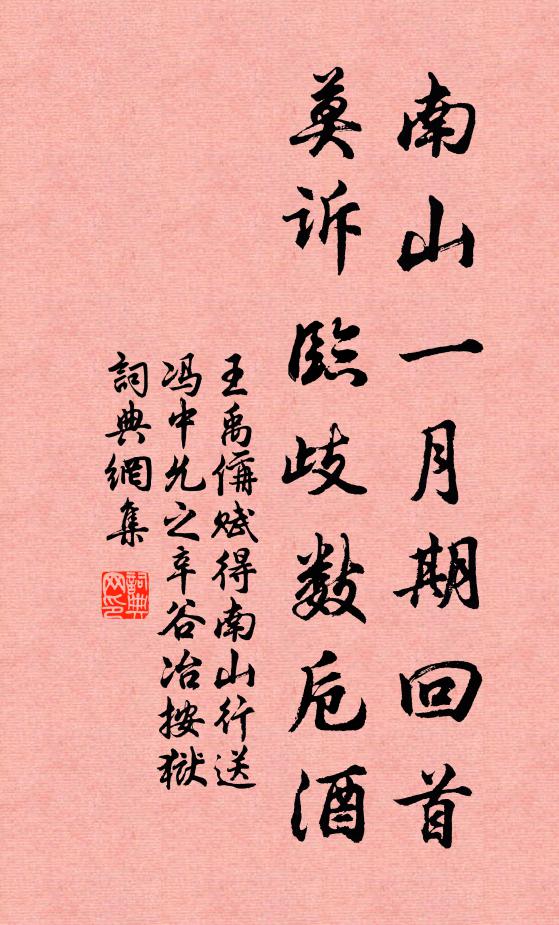 南山一月期回首
莫诉臨歧数卮酒
王禹偁赋得南山行送
冯中允之辛谷冶按獄
詞典網集
詞典
网印